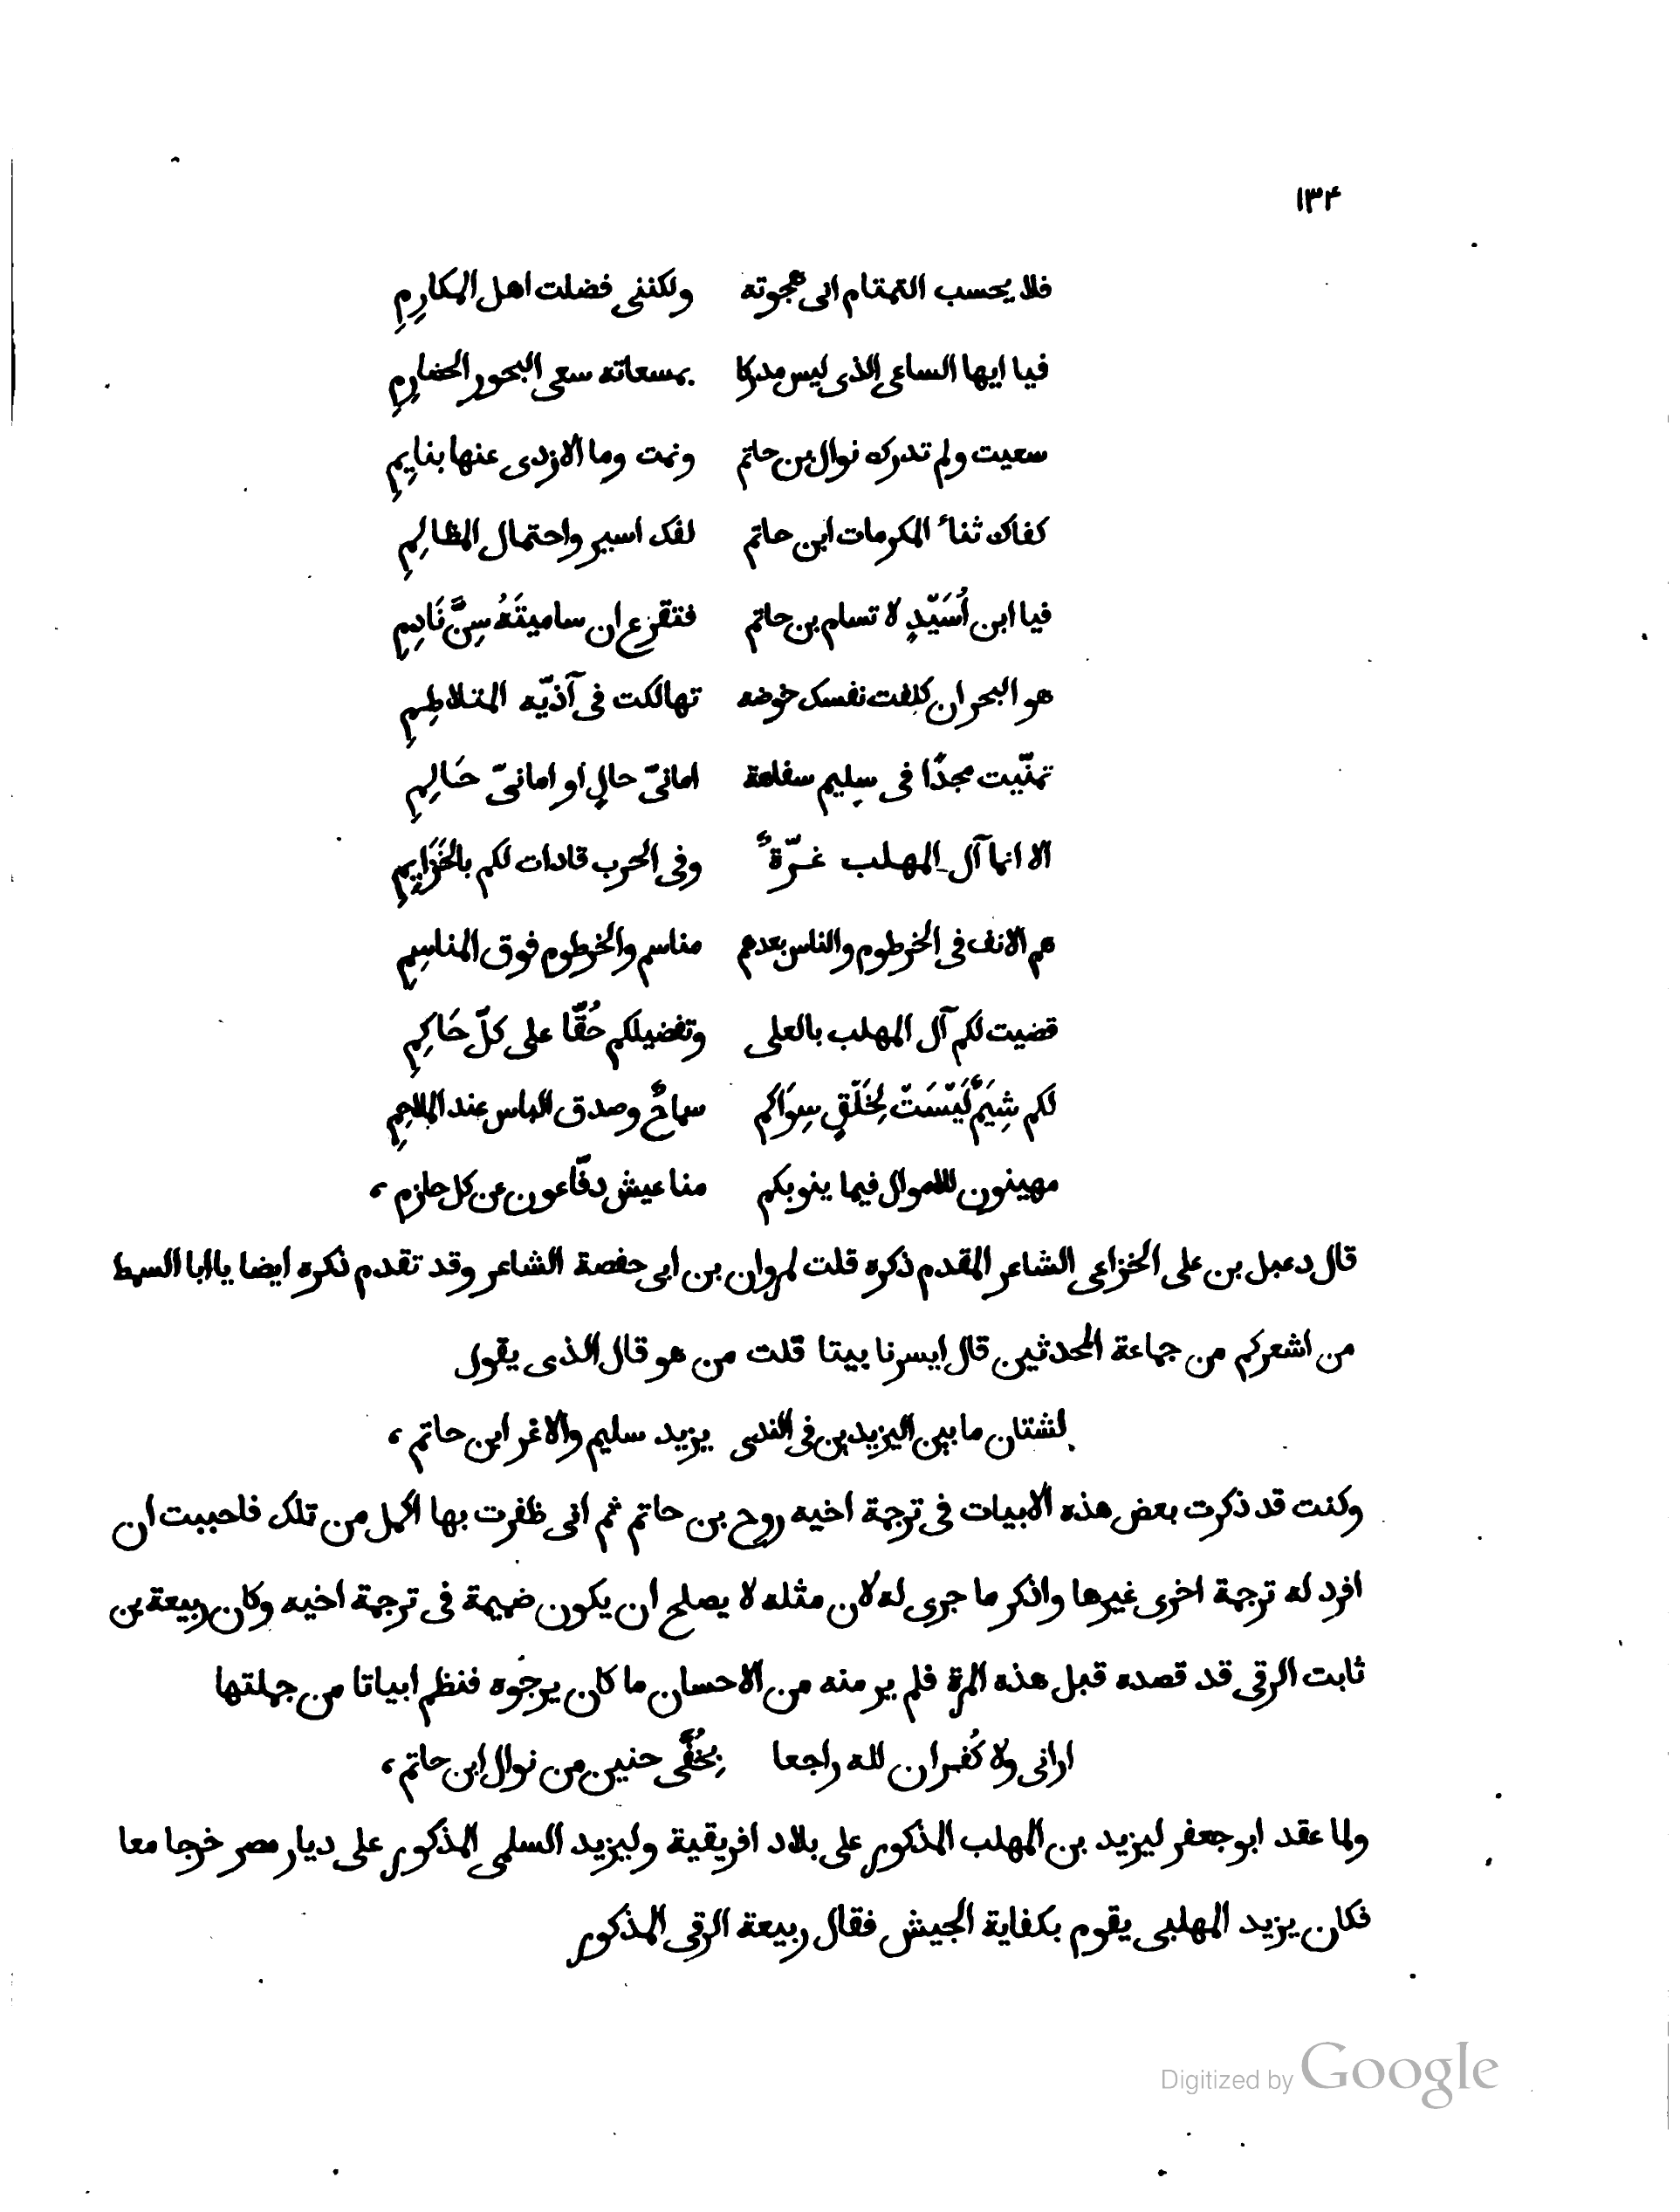 ١٣۴
فلا يحسب التمتام انى هجوته ولكننى فضلت اهل المكارِمِ
فيا ايها الساعى الذى ليس مدركا بمسعاته سعى البحور الخضارِمِ
سعيت ولم تدرك نوال بن حاتم ونمت وما الازدى عنها بنايِمِ
كفاك ثناء المكرمات ابن حاتم لفك اسير واحتمال المظالِمِ
فيا ابن أُسَيّدٍ لا تسام بن حاتم فتقرع ان ساميتَهُ سِنَّ نَادِمِ
هو البحر ان كلفت نفسك خوضه تهالكت فى آذيّه المتلاطِمِ
تمنّيت مجدًا فى سليم سفاهة امانىّ حالٍ او امانىّ حَالِمِ
الا انما آل المهلب غرّةٌ وفى الحرب قادات لكم بالخَزَايِمِ
هم الانف فى الخرطوم والناس بعدهم مناسم والخرطوم فوق المناسِمِ
قضيت لكم آل المهلب بالعلى وتفضيلكم حُقّا على كلّ حَاكِمِ
لكم شِيَمٌ لَيْسَتْ لِخَلْقٍ سِوَاكم سماحٌ وصدق الباس عند الملاحِمِ
مهينون للاموال فيما ينوبكم مناعيش دفّاعون عن كل حازم ،
قال دعبل بن على الخزاعى الشاعر المقدم ذكره قلت لمروان بن ابى حفصة الشاعر وقد تقدم ذكره ايضا يا ابا السمط
من اشعركم من جماعة المحدثين قال ايسرنا بيتا قلت من هو قال الذى يقول
لشتان ما بين اليزيدين فى الندى يزيد سليم والاغر ابن حاتم ،
وكنت قد ذكرت بعض هذه الابيات فى ترجمة اخيه روح بن حاتم ثم انى ظفرت بها اكمل من تلك فاحببت ان
افرد له ترجمة اخرى غيرها واذكر ما جرى له لان مثله لا يصلح ان يكون ضميمة فى ترجمة اخيه وكان ربيعة بن
ثابت الرقى قد قصده قبل هذه المرة فلم ير منه من الاحسان ما كان يرجوه فنظم ابياتا من جملتها
ارانى ولا كُفران لله راجعا بِخُفَّى حنين من نوال ابن حاتم ،
ولما عقد ابو جعفر ليزيد بن المهلب المذكور على بلاد افريقية وليزيد السلمى المذكور على ديار مصر خرجا معا
فكان يزيد المهلبى يقوم بكفاية الجيش فقال ربيعة الرقى المذكور
Digitized by Google